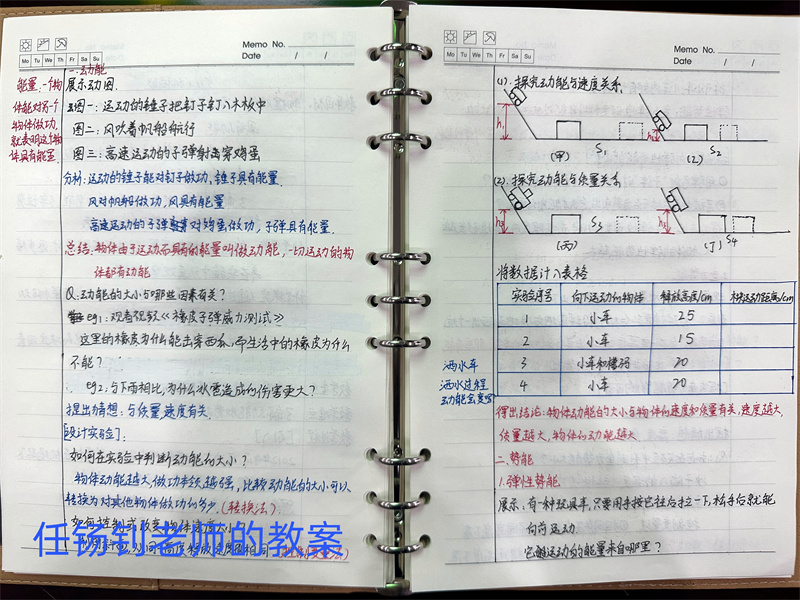 Memo No.
Mo Tu We Th Fr Sa Su
Date / /
一.动能
能量:一个物
体能对另一个
物体做功,
就表明这个物
体具有能量.
展示动图.
图一:运动的锤子把钉子钉入木板中
图二:风吹着帆船航行
图三:高速运动的子弹射击穿鸡蛋
分析:运动的锤子能对钉子做功,锤子具有能量.
风对帆船做功,风具有能量
高速运动的子弹对鸡蛋做功,子弹具有能量.
总结:物体由于运动而具有的能量叫做动能,一切运动的物
体都有动能
Q:动能的大小与哪些因素有关?
eg1:观看视频《橡皮子弹威力测试》
这里的橡皮为什么能击穿西瓜,而生活中的橡皮为什么
不能?
eg2:与下雨相比,为什么冰雹造成的伤害更大?
提出猜想:与质量、速度有关.
[设计实验]:
如何在实验中判断动能的大小?
物体动能越大,做功本领越强,比较动能的大小可以
转换为对其他物体做功的多少.(转换法)
任锡钊老师的教案
Memo No.
Mo Tu We Th Fr Sa Su
Date / /
(1).探究动能与速度关系.
h1 S1 h2 S2
(甲) (乙)
(2).探究动能与质量关系
h3 S3 h4 S4
(丙) (丁)
将数据计入表格
实验序号 向下运动的物体 释放高度/cm 木块运动距离/cm
1 小车 25
2 小车 15
3 小车和槽码 20
4 小车 20
洒水车
洒水过程
动能会变吗
得出结论:物体动能的大小与物体的速度和质量有关,速度越大,
质量越大,物体的动能越大
二.势能
1.弹性势能
展示:有一种玩具车,只要用手按它往后拉一下,松手后就能
向前运动.
它运动的能量来自哪里?